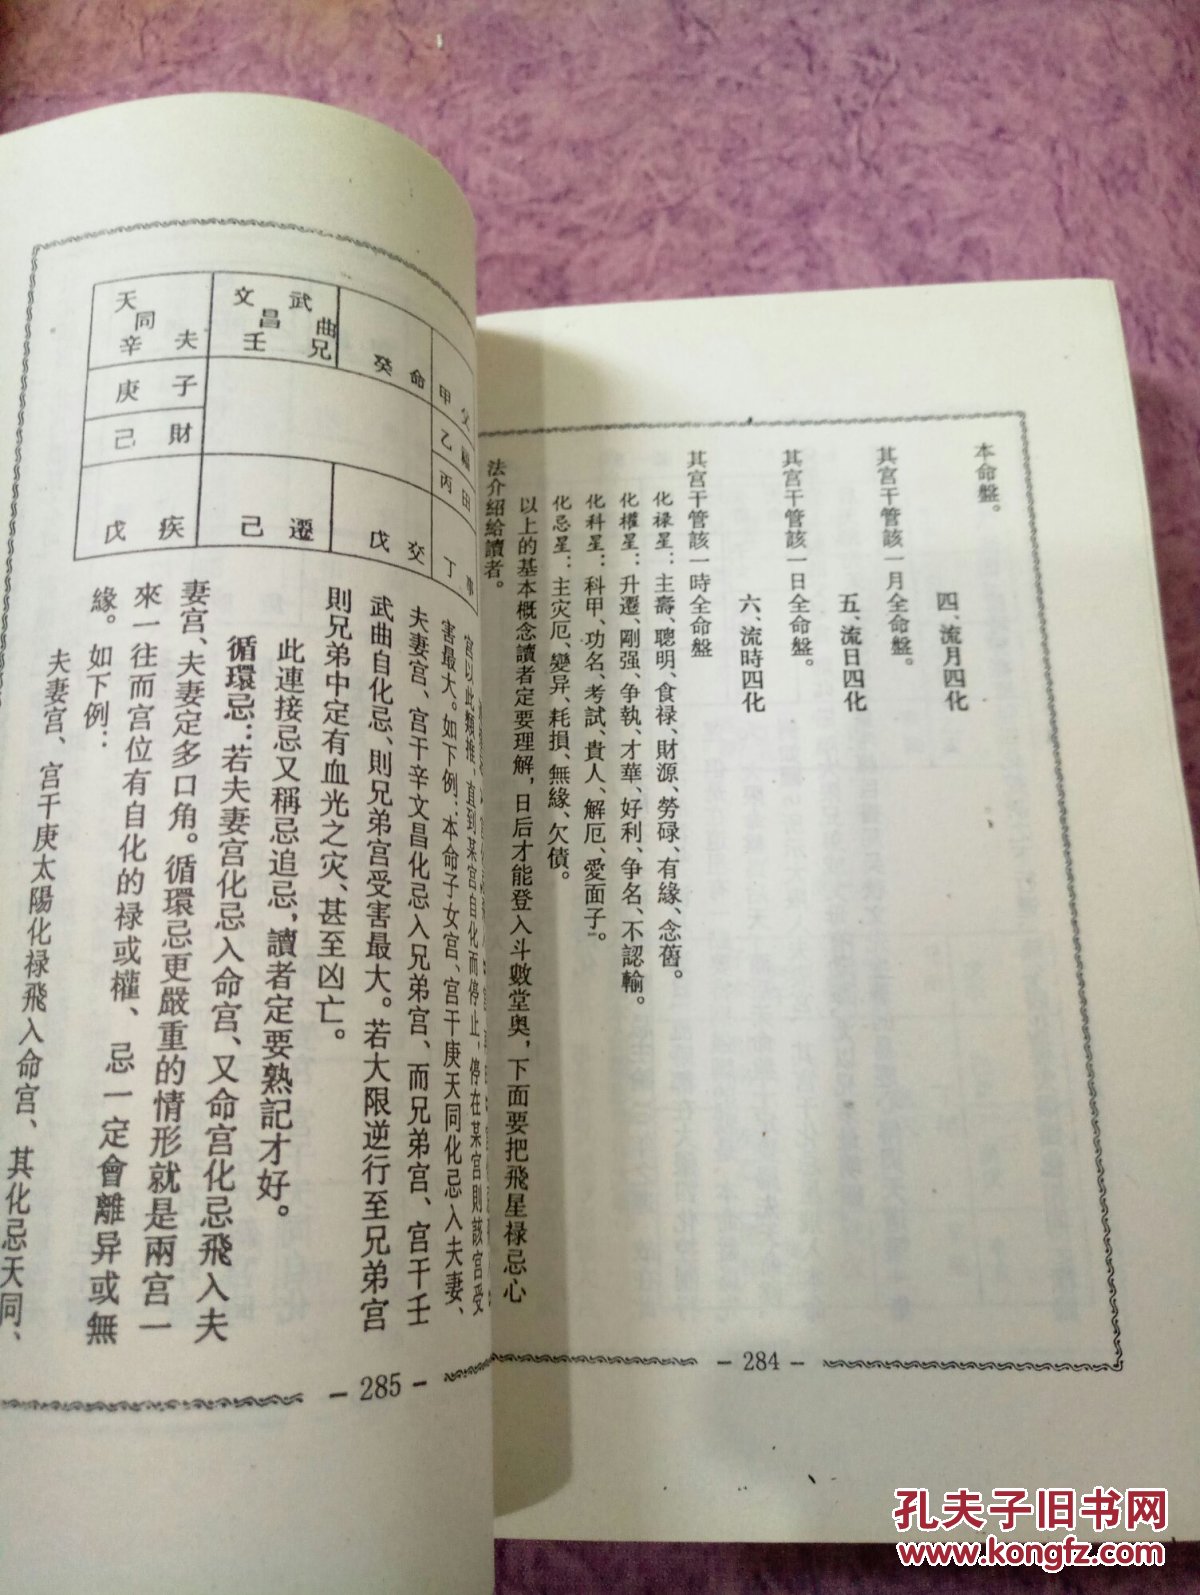 本命盤。
四、流月四化
其宫干管該一月全命盤。
五、流日四化
其宫干管該一日全命盤。
六、流時四化
其宫干管該一時全命盤
化禄星：主壽、聰明、食禄、財源、勞碌、有緣、念舊。
化權星：升遷、剛强、争執、才華、好利、争名、不認輸。
化科星：科甲、功名、考試、貴人、解厄、愛面子。
化忌星：主灾厄、變异、耗損、無緣、欠債。
以上的基本概念讀者定要理解，日后才能登入斗數堂奥，下面要把飛星禄忌心
法介紹給讀者。
－284－
天同 辛 夫
文昌 武曲 壬 兄
癸 命
甲 父
庚 子
乙 福
己 財
丙 田
戊 疾
己 遷
戊 交
丁
宫以此類推，直到某宫自化而停止，停在某宫則該宫受
害最大。如下例：本命子女宫、宫干庚天同化忌入夫妻、
夫妻宫、宫干辛文昌化忌入兄弟宫、而兄弟宫、宫干壬
武曲自化忌、則兄弟宫受害最大。若大限逆行至兄弟宫
則兄弟中定有血光之灾、甚至凶亡。
此連接忌又稱忌追忌，讀者定要熟記才好。
循環忌：若夫妻宫化忌入命宫、又命宫化忌飛入夫
妻宫、夫妻定多口角。循環忌更嚴重的情形就是兩宫一
來一往而宫位有自化的禄或權、忌一定會離异或無
緣。如下例：
夫妻宫、宫干庚太陽化禄飛入命宫、其化忌天同、
－285－
孔夫子旧书网
www.kongfz.com